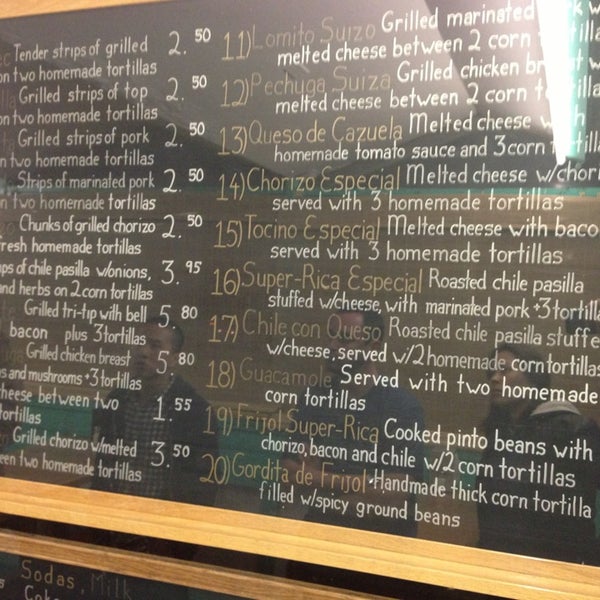 Tender strips of grilled 2.50
on two homemade tortillas
Grilled strips of top 2.50
on two homemade tortillas
Grilled strips of pork 2.50
two homemade tortillas
Strips of marinated pork 2.50
on two homemade tortillas
Chunks of grilled chorizo 2.50
fresh homemade tortillas
of chile pasilla w/onions, 3.95
and herbs on 2 corn tortillas
Grilled tri-tip with bell 5.80
bacon plus 3 tortillas
Grilled chicken breast 5.80
and mushrooms + 3 tortillas
cheese between two 1.55
tortillas
Grilled chorizo w/melted 3.50
two homemade tortillas
11) Lomito Suizo Grilled marinated
melted cheese between 2 corn
12) Pechuga Suiza Grilled chicken
melted cheese between 2 corn
13) Queso de Cazuela Melted cheese
homemade tomato sauce and 3 corn
14) Chorizo Especial Melted cheese
served with 3 homemade tortillas
15) Tocino Especial Melted cheese with
served with 3 homemade tortillas
16) Super-Rica Especial Roasted chile pasilla
stuffed w/cheese, with marinated pork + 3
17) Chile con Queso Roasted chile pasilla
w/cheese, served w/2 homemade corn tortillas
18) Guacamole Served with two homemade
corn tortillas
19) Frijol Super-Rica Cooked pinto beans with
chorizo, bacon and chile w/2 corn tortillas
20) Gordita de Frijol • Handmade thick corn tortilla
filled w/spicy ground beans
Sodas, Milk